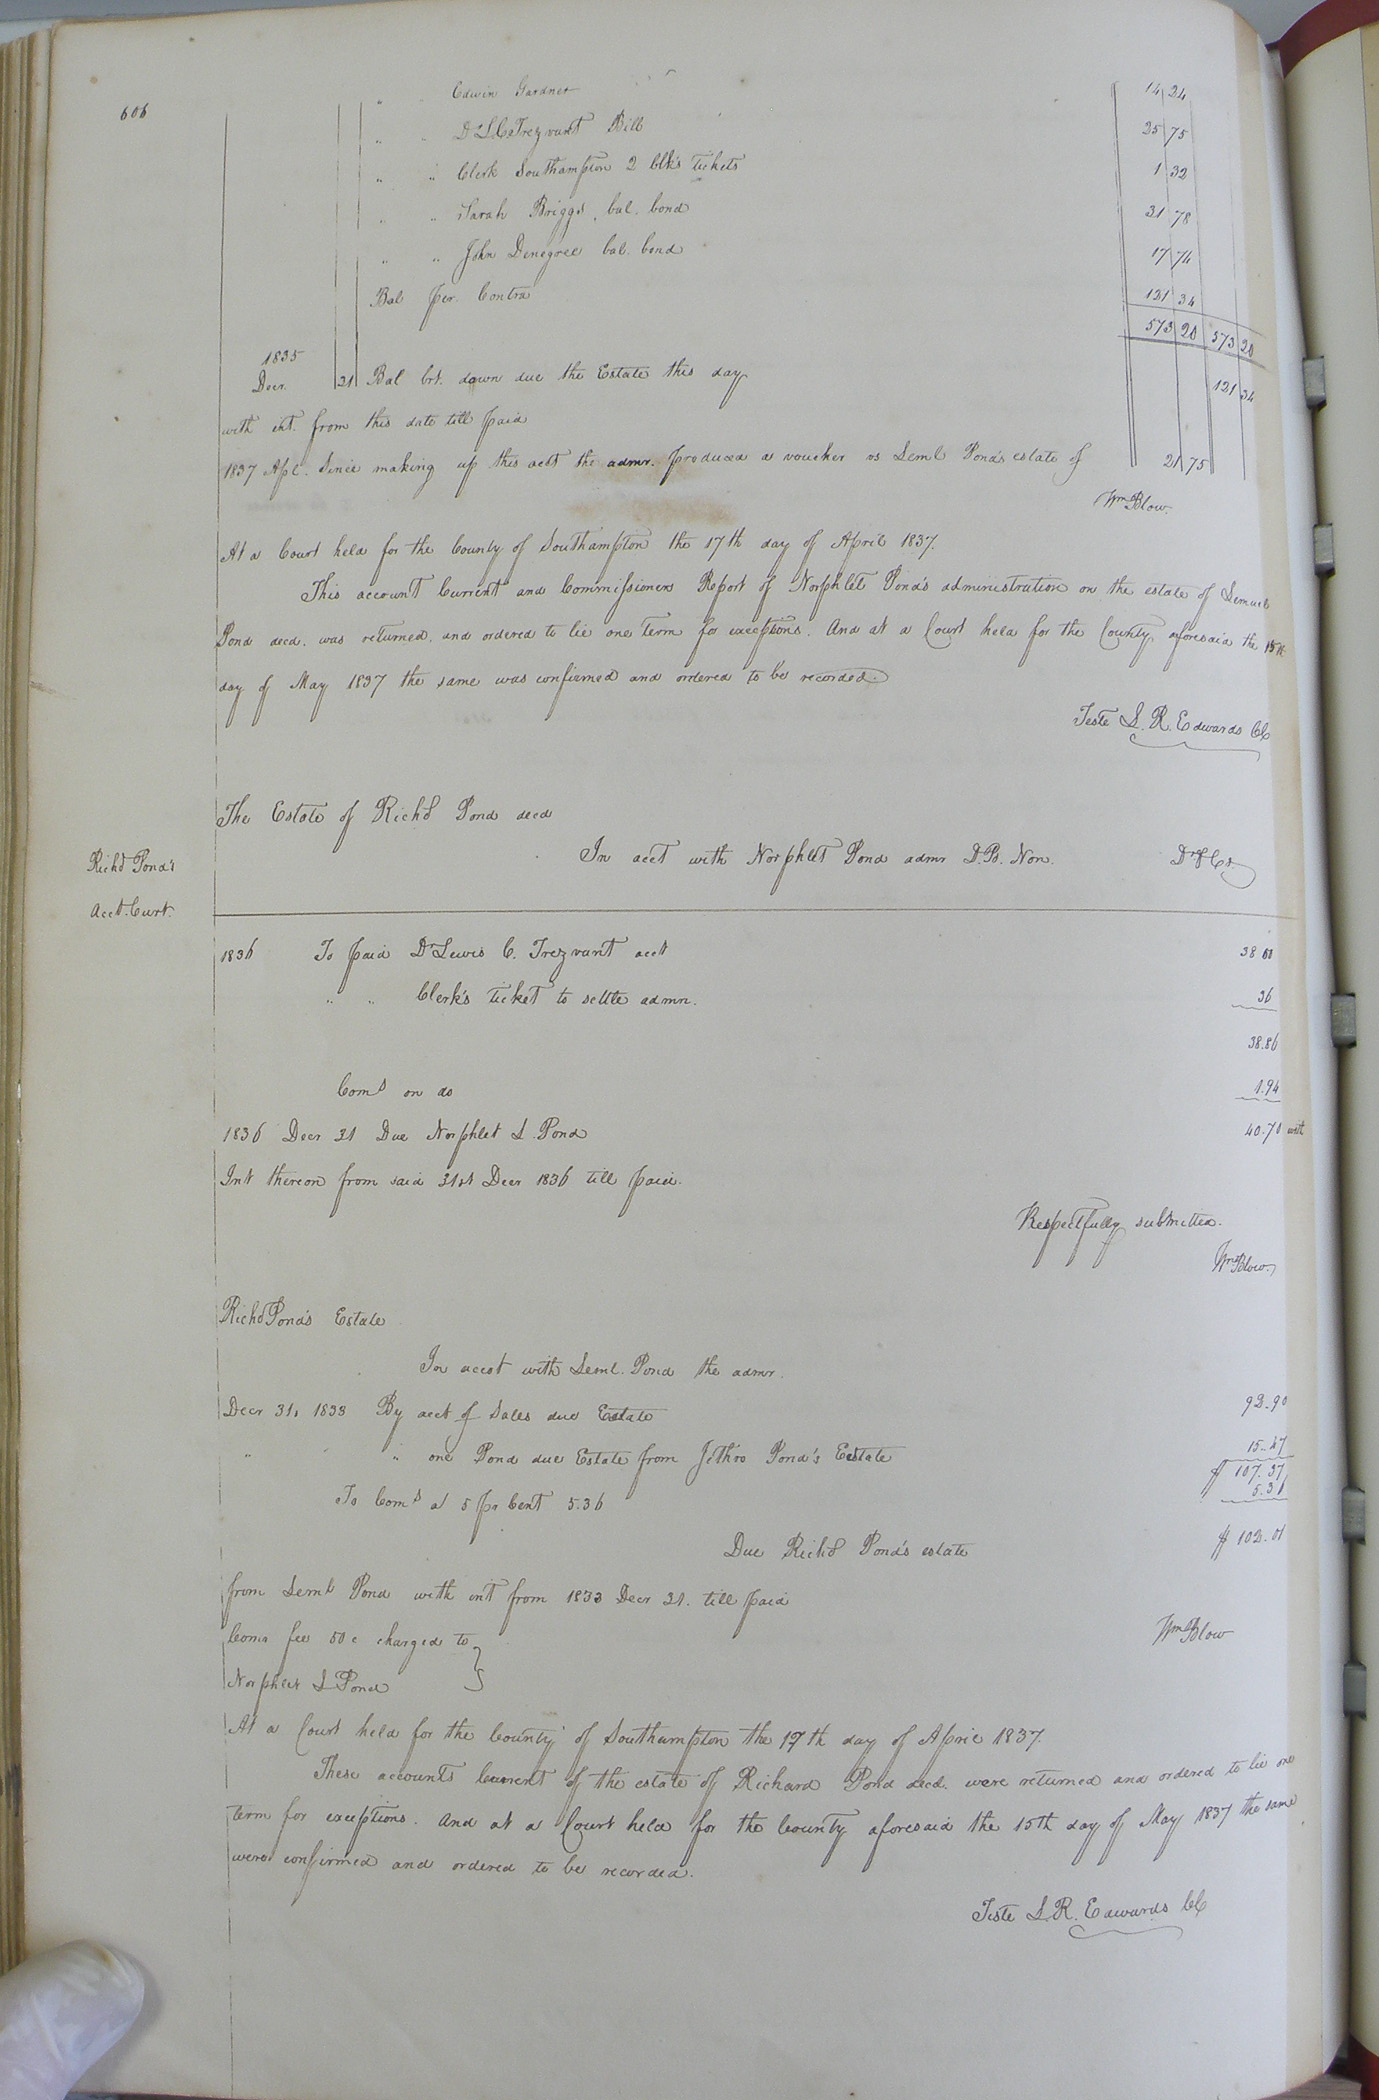 606
" Edwin Gardner 14 24
" " Dr L C Trezvant Bill 25 75
" " Clerk Southampton 2 Clk's tickets 1 32
" " Sarah Briggs, bal. bond 31 78
" " John Denegree bal. bond 17 74
Bal per. Contra 121 34
573 20 573 20
1835
Decr. 21 Bal brt. down due the Estate this day 121 34
with int. from this date till paid
1837 Apl. Since making up this acct the admr. produced a voucher vs Seml Pond's estate of 21 75
Wm Blow.
At a Court held for the County of Southampton the 17th day of April 1837.
This account Current and Commissioners Report of Norphlet Pond's administration on the estate of Lemuel
Pond decd. was returned, and ordered to lie one term for exceptions. And at a Court held for the County aforesaid the 15th
day of May 1837 the same was confirmed and ordered to be recorded.
Teste L. R. Edwards CC
The Estate of Richd Pond decd
In acct with Norphlet Pond admr D.B. Non. Dr & Cr.
Richd Pond's
Acct. Curt.
1836 To paid Dr Lewis C. Trezvant acct 38
" " Clerk's ticket to settle admn. 36
38.86
Coms on do 1.94
1836 Decr 31 Due Norphlet L. Pond 40.70 with
Int thereon from said 31st Decr 1836 till paid.
Respectfully submitted.
Wm Blow.
Richd Pond's Estate
In accot with Leml. Pond the admr.
Decr 31, 1833 By acct of Sales due Estate 92.90
" " one Pond due Estate from Jethro Pond's Estate 15.47
$ 107.37
To Coms at 5 pr Cent 5.36 5.36
Due Richd Pond's estate $ 102.01
from Leml Pond with int from 1833 Decr 31. till paid
Wm Blow
Comr fee 50c charged to }
Norphlet L Pond
At a Court held for the County of Southampton the 17th day of April 1837.
These accounts Current of the estate of Richard Pond decd. were returned and ordered to lie one
term for exceptions. And at a Court held for the County aforesaid the 15th day of May 1837 the same
were confirmed and ordered to be recorded.
Teste L. R. Edwards CC